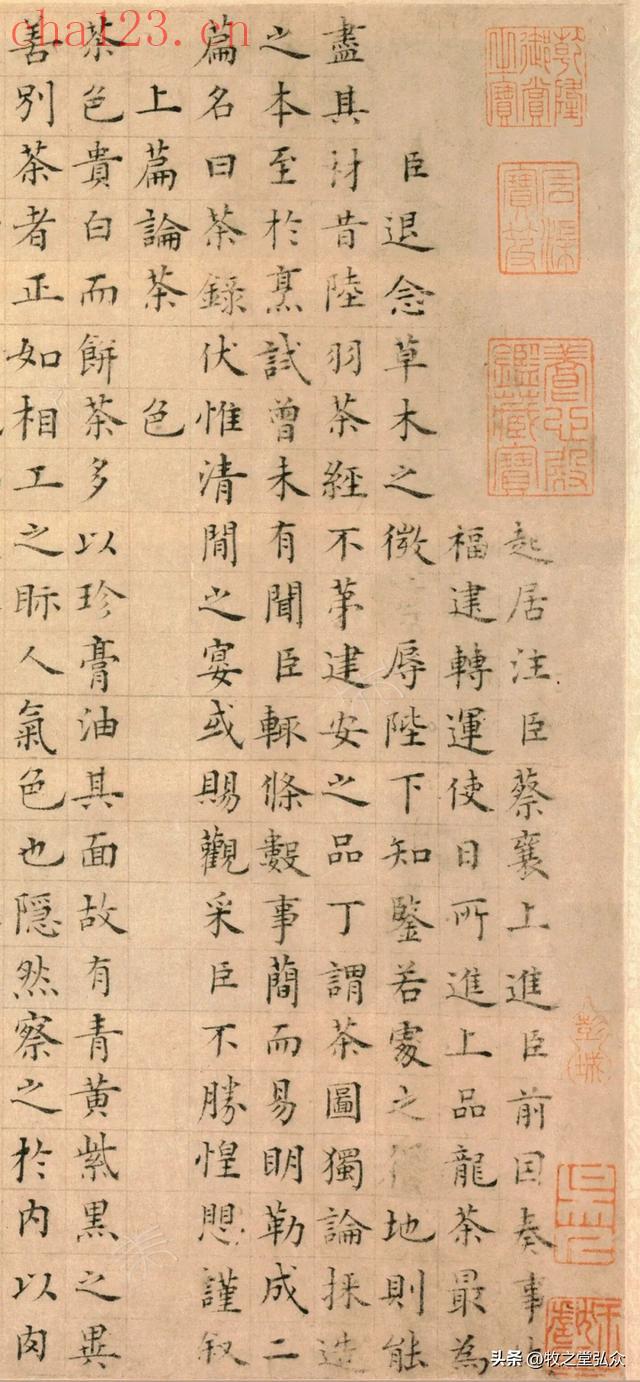 乾隆御賞之寶
石渠寶笈
養心殿鑑藏寶
起居注臣蔡襄上進臣前因奏事
福建轉運使日所進上品龍茶最為
臣退念草木之微辱陛下知鑒若處之地則能
盡其材昔陸羽茶經不第建安之品丁謂茶圖獨論採造
之本至於烹試曾未有聞臣輒條數事簡而易明勒成二
篇名曰茶錄伏惟清閒之宴或賜觀采臣不勝惶愳謹叙
上篇論茶 色
茶色貴白而餅茶多以珍膏油其面故有青黃紫黑之異
善別茶者正如相工之眎人氣色也隱然察之於内以肉
彭城
cha123.cn
头条 @牧之堂弘众